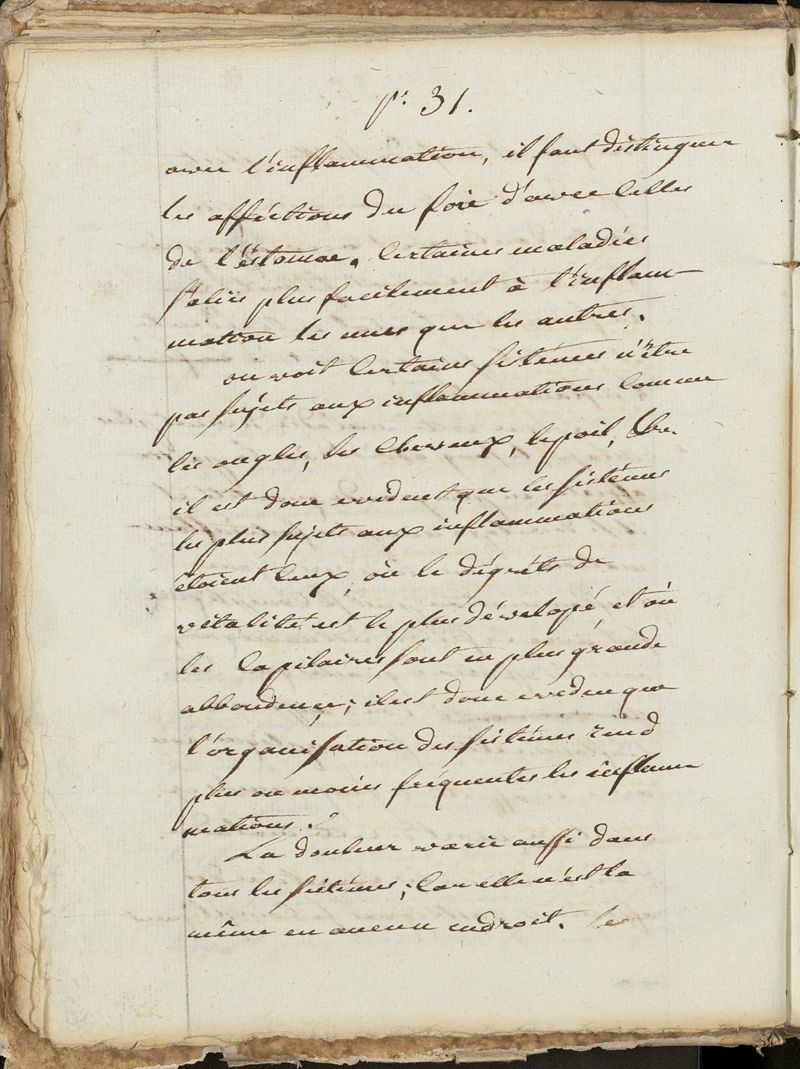 p. 31.
avec l'inflammation, il faut distinguer
les affections du foie d'avec celles
de l'éstomac. Certaines maladies
s'alie plus facilement à l'inflam-
mation les unes que les autres.
on voit certains sistémes n'être
pas sujets aux inflammations comme
les ongles, les cheveux, le poil, &c.
il est donc evident que les sistémes
les plus sujets aux inflammations
étoient ceux, où le dégréts de
vitalité est le plus dévelopé, et où
les capilaires sont en plus grande
abbondence; il est donc eviden que
l'organisation des sistémes rend
plus ou moins fréquentes les inflam
mations.
La douleur varie aussi dans
tous les sistémes; car elle n'est la
même en aucun endroit. le